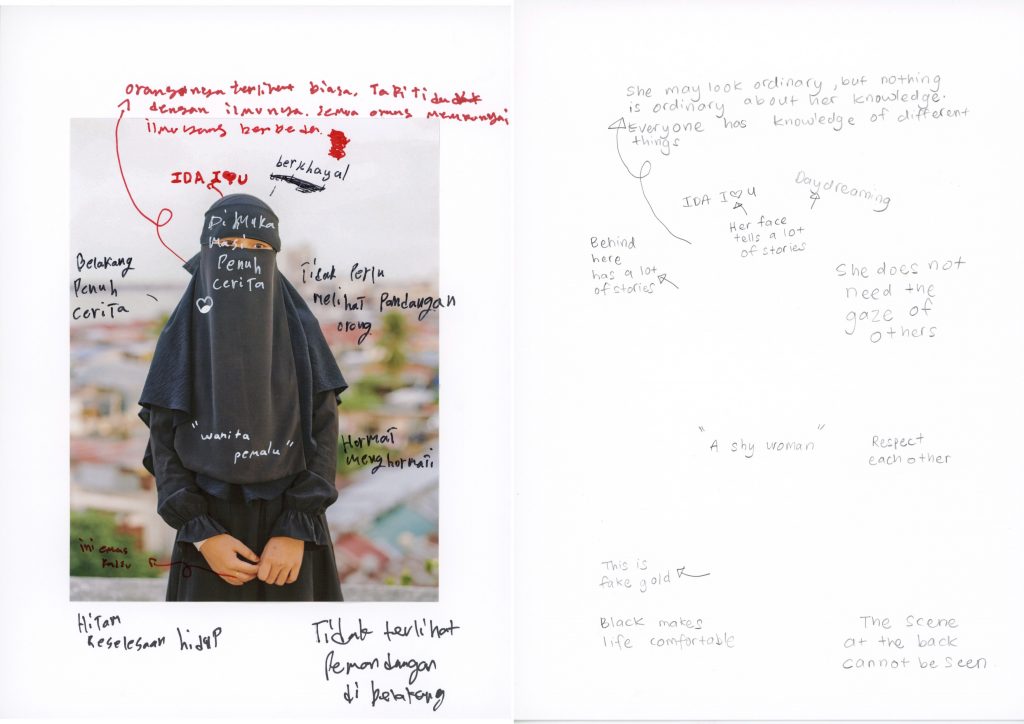 orangnya terlihat biasa, tapi tidak
dengan ilmunya. semua orang mempunyai
ilmu yang berbeda.
berkhayal
IDA I♥U
Di Muka
Masi
Penuh
Cerita
Belakang
Penuh
cerita
Tidak Perlu
melihat Pandangan
orang
"wanita
pemalu"
Hormat
menghormati
ini emas
Palsu
Hitam
keselesaan hidup
Tidak terlihat
Pemandangan
di belakang
She may look ordinary, but nothing
is ordinary about her knowledge.
Everyone has knowledge of different
things
Daydreaming
IDA I♥U
Her face
tells a lot
of stories
Behind
here
has a lot
of stories
She does not
need the
gaze of
others
"A shy woman"
Respect
each other
This is
fake gold
Black makes
life comfortable
The scene
at the back
cannot be seen.